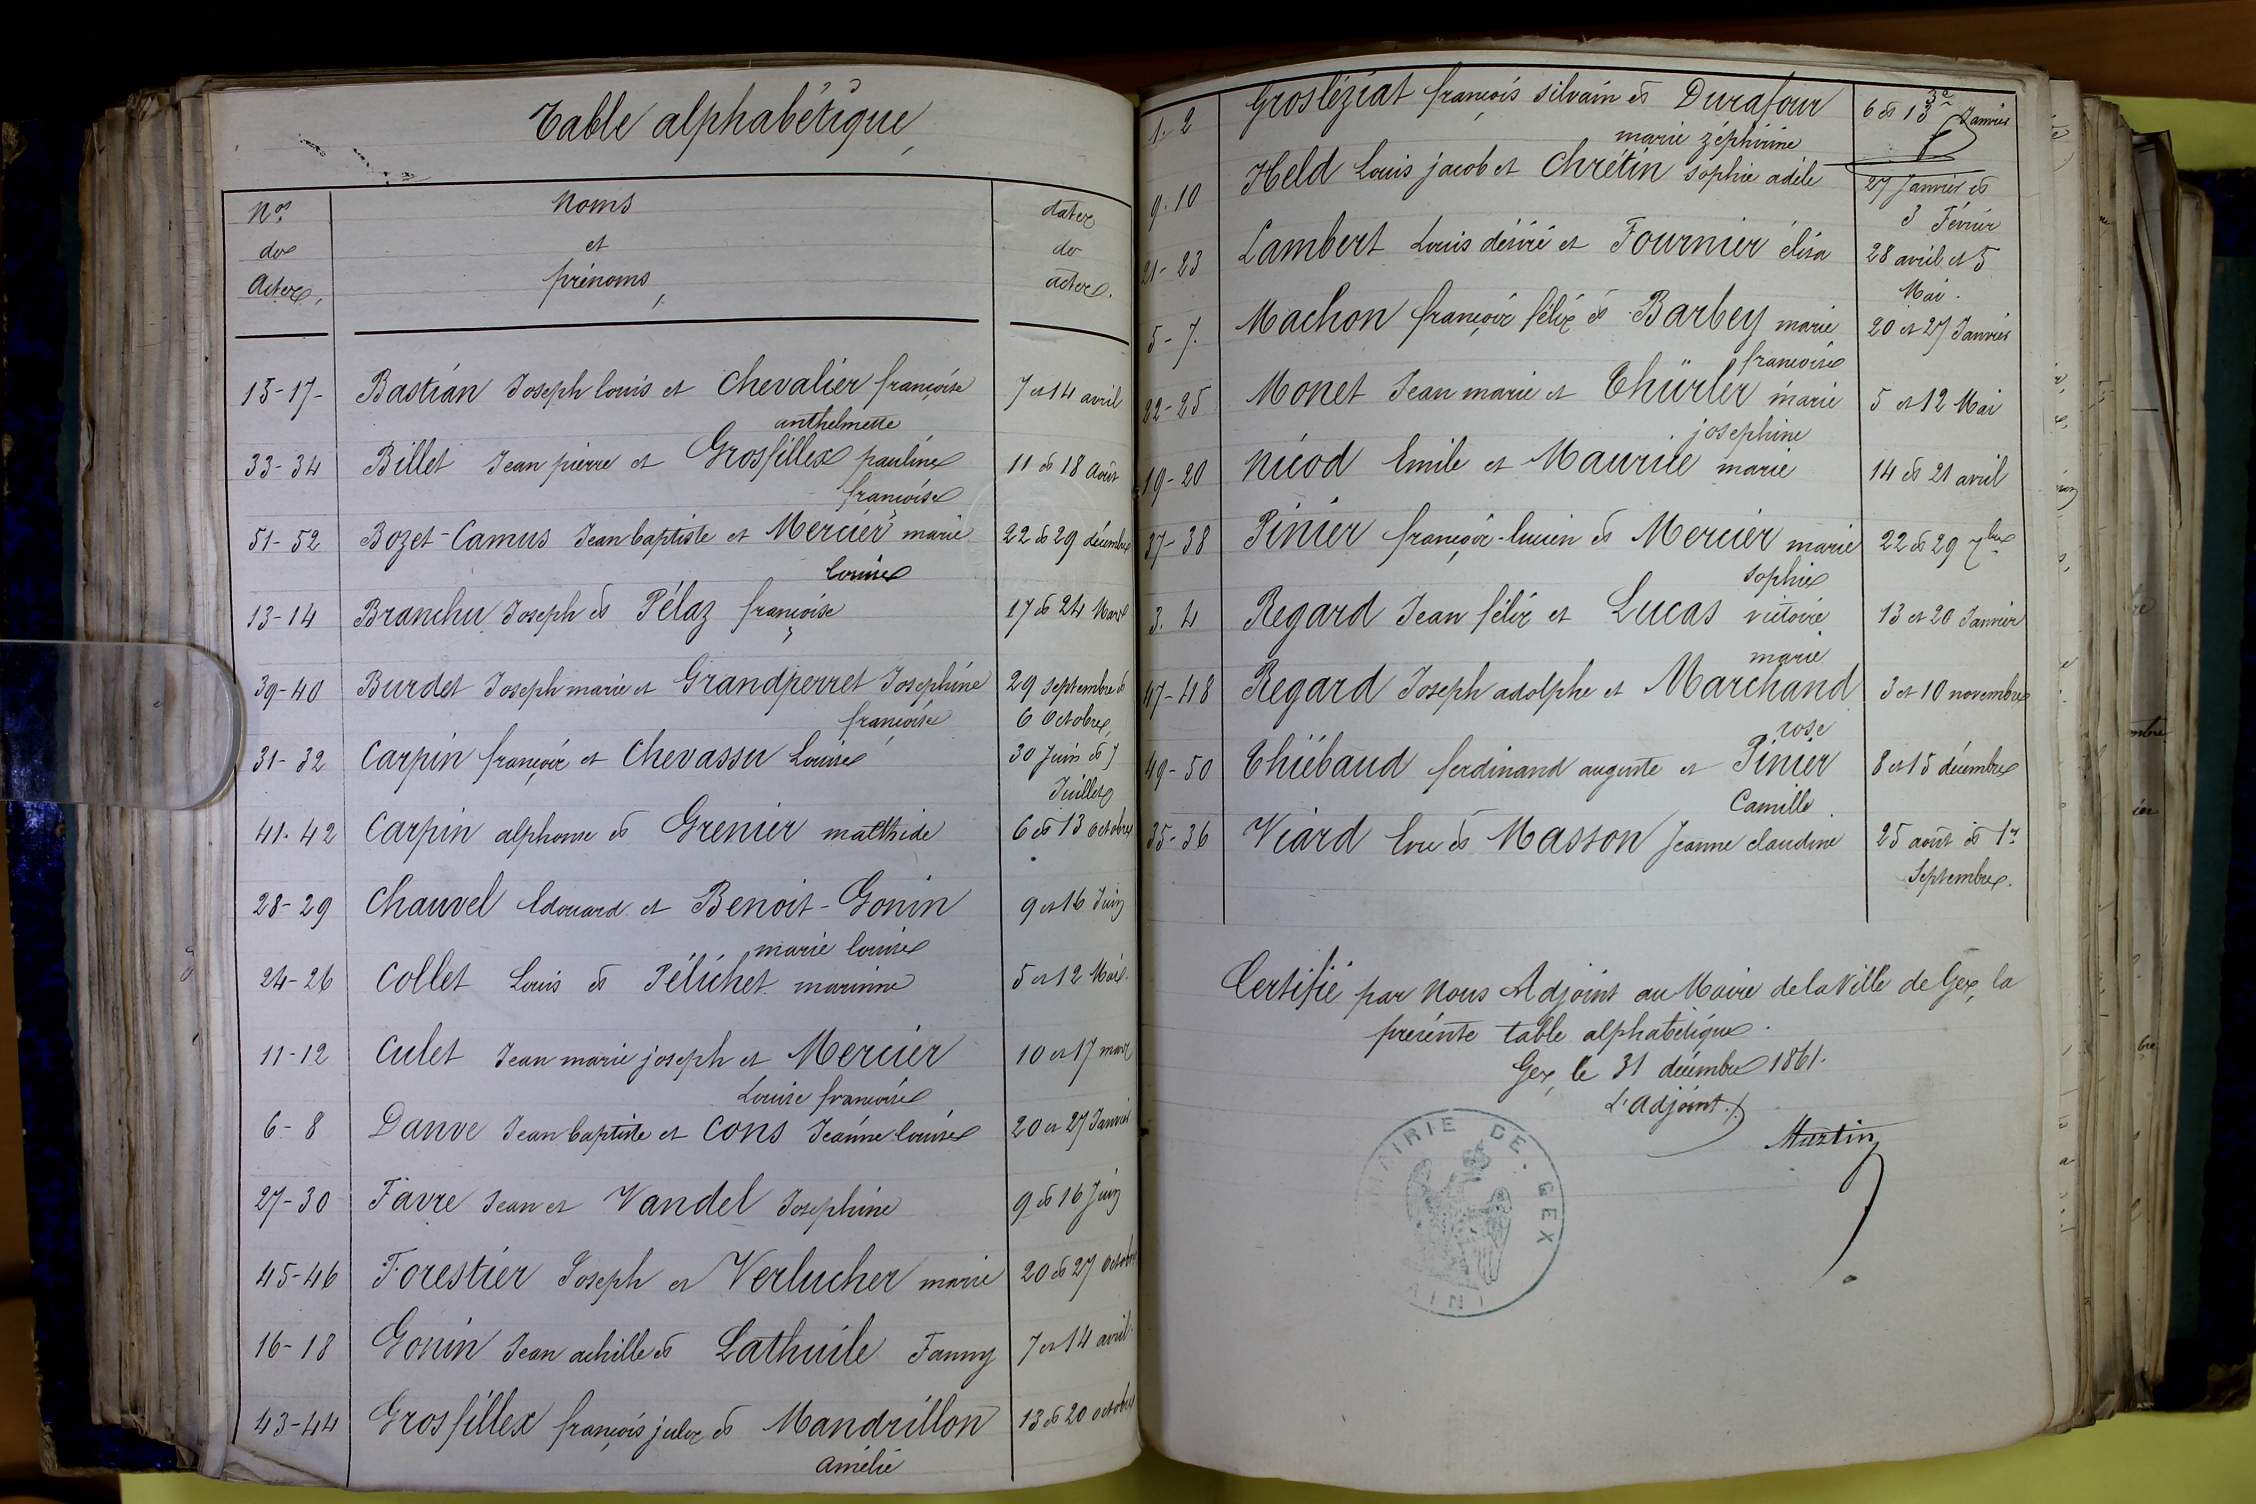 Table alphabétique,
Nos Noms dates
des et de
Actes, prénoms, actes.
15-17- Bastian Joseph louis et Chevalier françoise 7 et 14 avril
anthelmette
33-34 Billet Jean pierre et Grosfillex pauline 11 et 18 Août
françoise
51-52 Bozet-Camus Jean baptiste et Mercier marie 22 et 29 décembre
louise
13-14 Branchu Joseph et Pélaz françoise 17 et 24 Mars
39-40 Burdet Joseph marie et Grandperret Josephine 29 septembre et
françoise 6 Octobre,
31-32 Carpin françois et Chevassu Louise 30 Juin et 7
Juillet
41-42 Carpin alphonse et Grenier matthide 6 et 13 octobre
28-29 Chauvel Edouard et Benoit-Gonin 9 et 16 Juin
marie louise
24-26 Collet Louis et Pélichet marinne 5 et 12 Mai.
11-12 Culet Jean marie joseph et Mercier 10 et 17 mars
Louise françoise
6-8 Danve Jean baptiste et Cons Jeanne-louise 20 et 27 Janvier
27-30 Favre Jean et Vandel Josephine 9 et 16 Juin
45-46 Forestier Joseph et Verlucher marie 20 et 27 octobre
16-18 Gonin Jean achille et Lathuile Fanny 7 et 14 avril.
43-44 Grosfillex françois jules et Mandrillon 13 et 20 octobre
amélie
1.2 Grosléziat françois silvain et Durafour 6 et 13 Janvier
marie zéphirine
9.10 Held Louis jacob et Chrétin sophie adèle 27 Janvier et
3 Février
21-23 Lambert Louis désiré et Fournier élisa 28 avril et 5
Mai.
5-7. Machon françois félix et Barbey marie 20 et 27 Janvier
françoise
22-25 Monet Jean marie et Thürler marie 5 et 12 Mai
josephine
19-20 Nicod Emile et Maurice marie 14 et 21 avril
37-38 Pinier françois-lucien et Mercier marie 22 et 29 7bre
sophie
3.4 Regard Jean félix et Lucas victoire 13 et 20 Janvier
marie
47-48 Regard Joseph adolphe et Marchand 3 et 10 novembre
rose
49-50 Thiébaud ferdinand auguste et Pinier 8 et 15 décembre
Camille.
35-36 Viard et Masson Jeanne claudine 25 août et 1er
Septembre.
Certifié par Nous Adjoint au Maire de la Ville de Gex, la
présente table alphabétique.
Gex, le 31 décembre 1861.
L'adjoint.
Martin
MAIRIE DE GEX